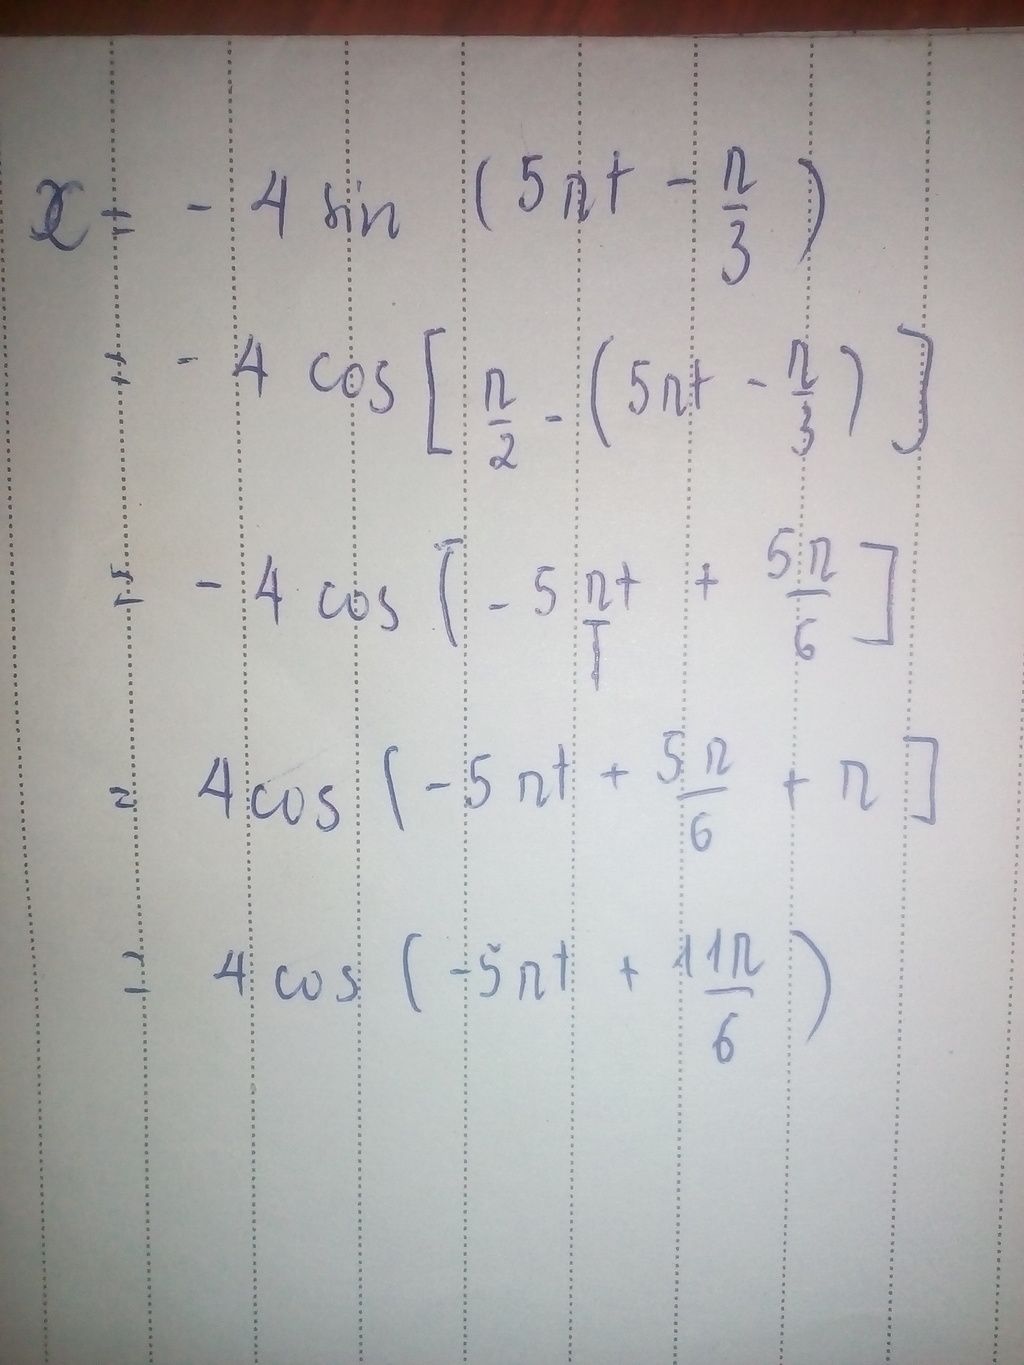 x = - 4 sin (5πt - π/3)
= - 4 cos [π/2 - (5πt - π/3)]
= - 4 cos [- 5πt + 5π/6]
= 4 cos [- 5πt + 5π/6 + π]
= 4 cos (-5πt + 11π/6)